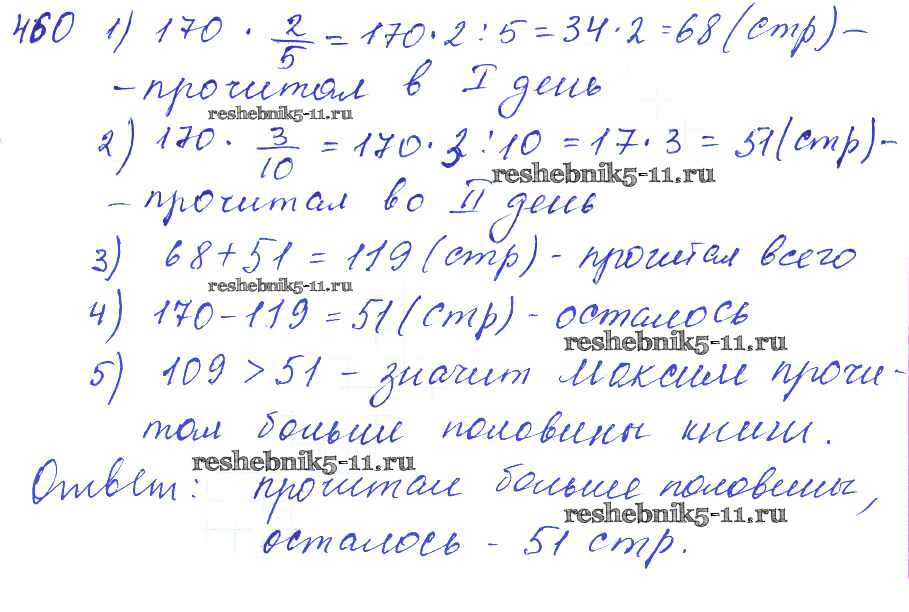 460 1) 170 · 2/5 = 170 · 2 : 5 = 34 · 2 = 68 (стр) –
– прочитал в I день
reshebnik5-11.ru
2) 170 · 3/10 = 170 · 3 : 10 = 17 · 3 = 51 (стр) –
reshebnik5-11.ru
– прочитал во II день
3) 68 + 51 = 119 (стр) – прочитал всего
reshebnik5-11.ru
4) 170 – 119 = 51 (стр) – осталось
reshebnik5-11.ru
5) 109 > 51 – значит Максим прочи-
тал больше половины книги.
reshebnik5-11.ru
Ответ: прочитал больше половины,
reshebnik5-11.ru
осталось – 51 стр.